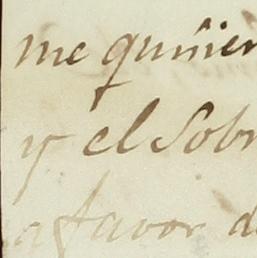 me quiñien
y el Sobr
a favor d